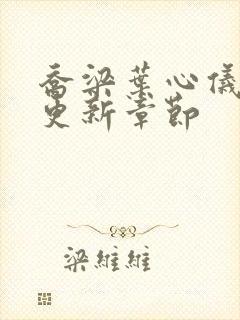 乔梁葉心儀
更新章節
梁維維